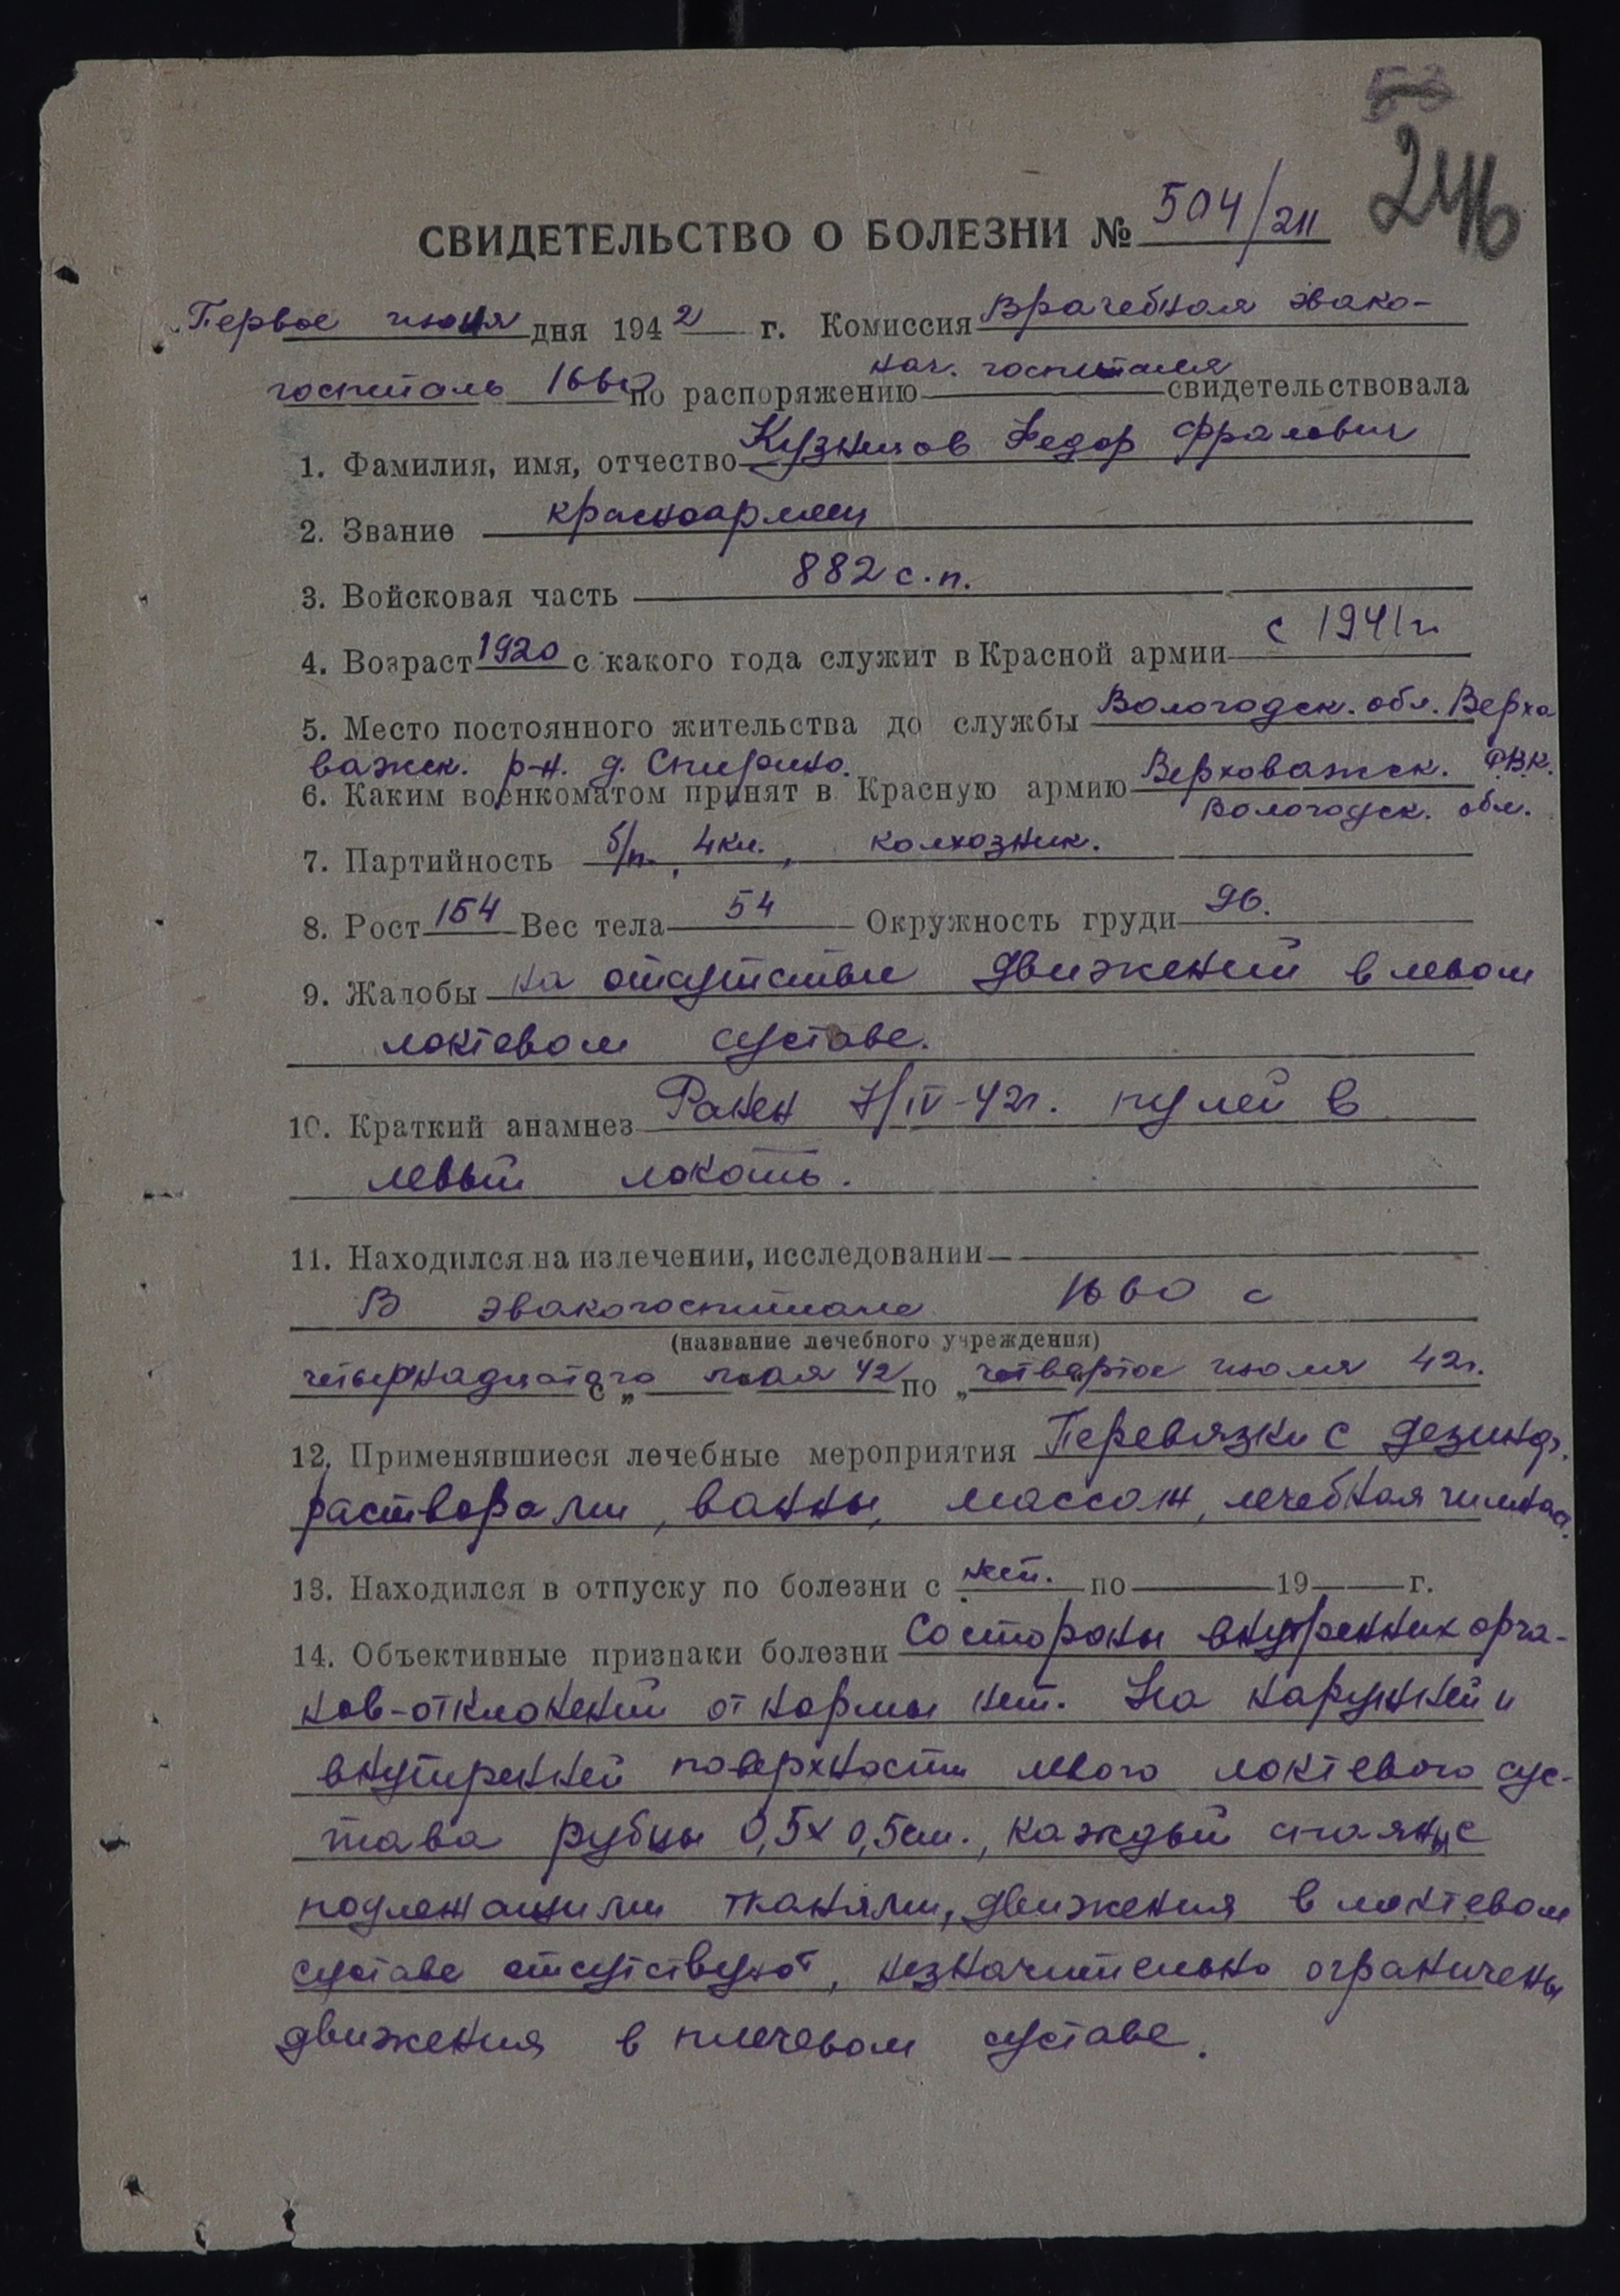 53
246
СВИДЕТЕЛЬСТВО О БОЛЕЗНИ № 504/211
Первое июня дня 1942 г. Комиссия Врачебная эвако-
госпиталь 1660 по распоряжению нач. госпиталя свидетельствовала
1. Фамилия, имя, отчество Кузнецов Федор Фралович
2. Звание красноармеец
3. Войсковая часть 882 с.п.
4. Возраст 1920 с какого года служит в Красной армии с 1941 г.
5. Место постоянного жительства до службы Вологодск. обл. Верхо
важск. р-н. д. Спирино.
6. Каким военкоматом принят в Красную армию Верховажск. РВК.
Вологодск. обл.
7. Партийность б/п., 4 кл., колхозник.
8. Рост 154 Вес тела 54 Окружность груди 96.
9. Жалобы на отсутствие движений в левом
локтевом суставе.
10. Краткий анамнез Ранен 7/IV-42г. пулей в
левый локоть.
11. Находился на излечении, исследовании
В эвакогоспитале 1660 с
(название лечебного учреждения)
четырнадцатого с „ мая 42 по „ четвертое июля 42г.
12. Применявшиеся лечебные мероприятия Перевязки с дезинф.
растворами, ванны, массаж, лечебная гимнас.
13. Находился в отпуску по болезни с нет. по 19 г.
14. Объективные признаки болезни Со стороны внутренних орга-
нов-отклонений от нормы нет. На наружней и
внутренней поверхности левого локтевого сус-
тава рубцы 0,5х0,5см., каждый спаяны с
подлежащими тканями, движения в локтевом
суставе отсутствуют, незначительно ограничены
движения в плечевом суставе.